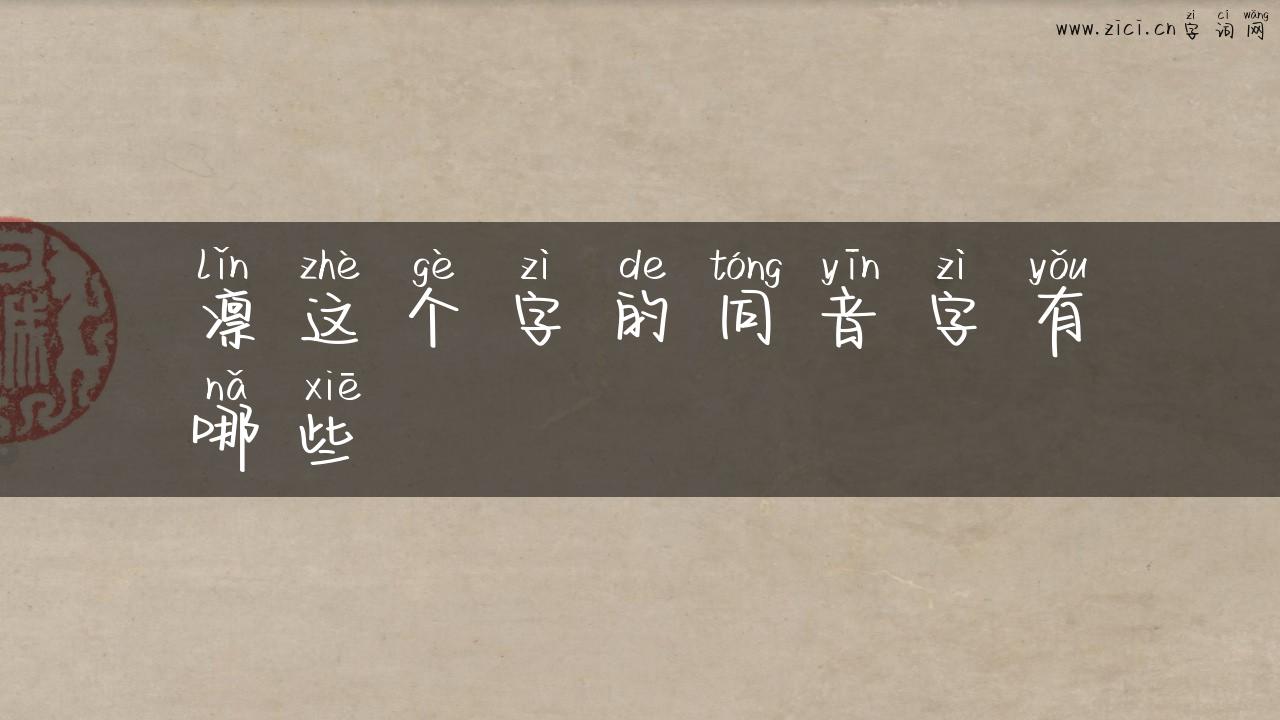 zì cí wǎng
www.zici.cn 字 词 网
lǐn zhè gè zì de tóng yīn zì yǒu
凛 这 个 字 的 同 音 字 有
nǎ xiē
哪 些